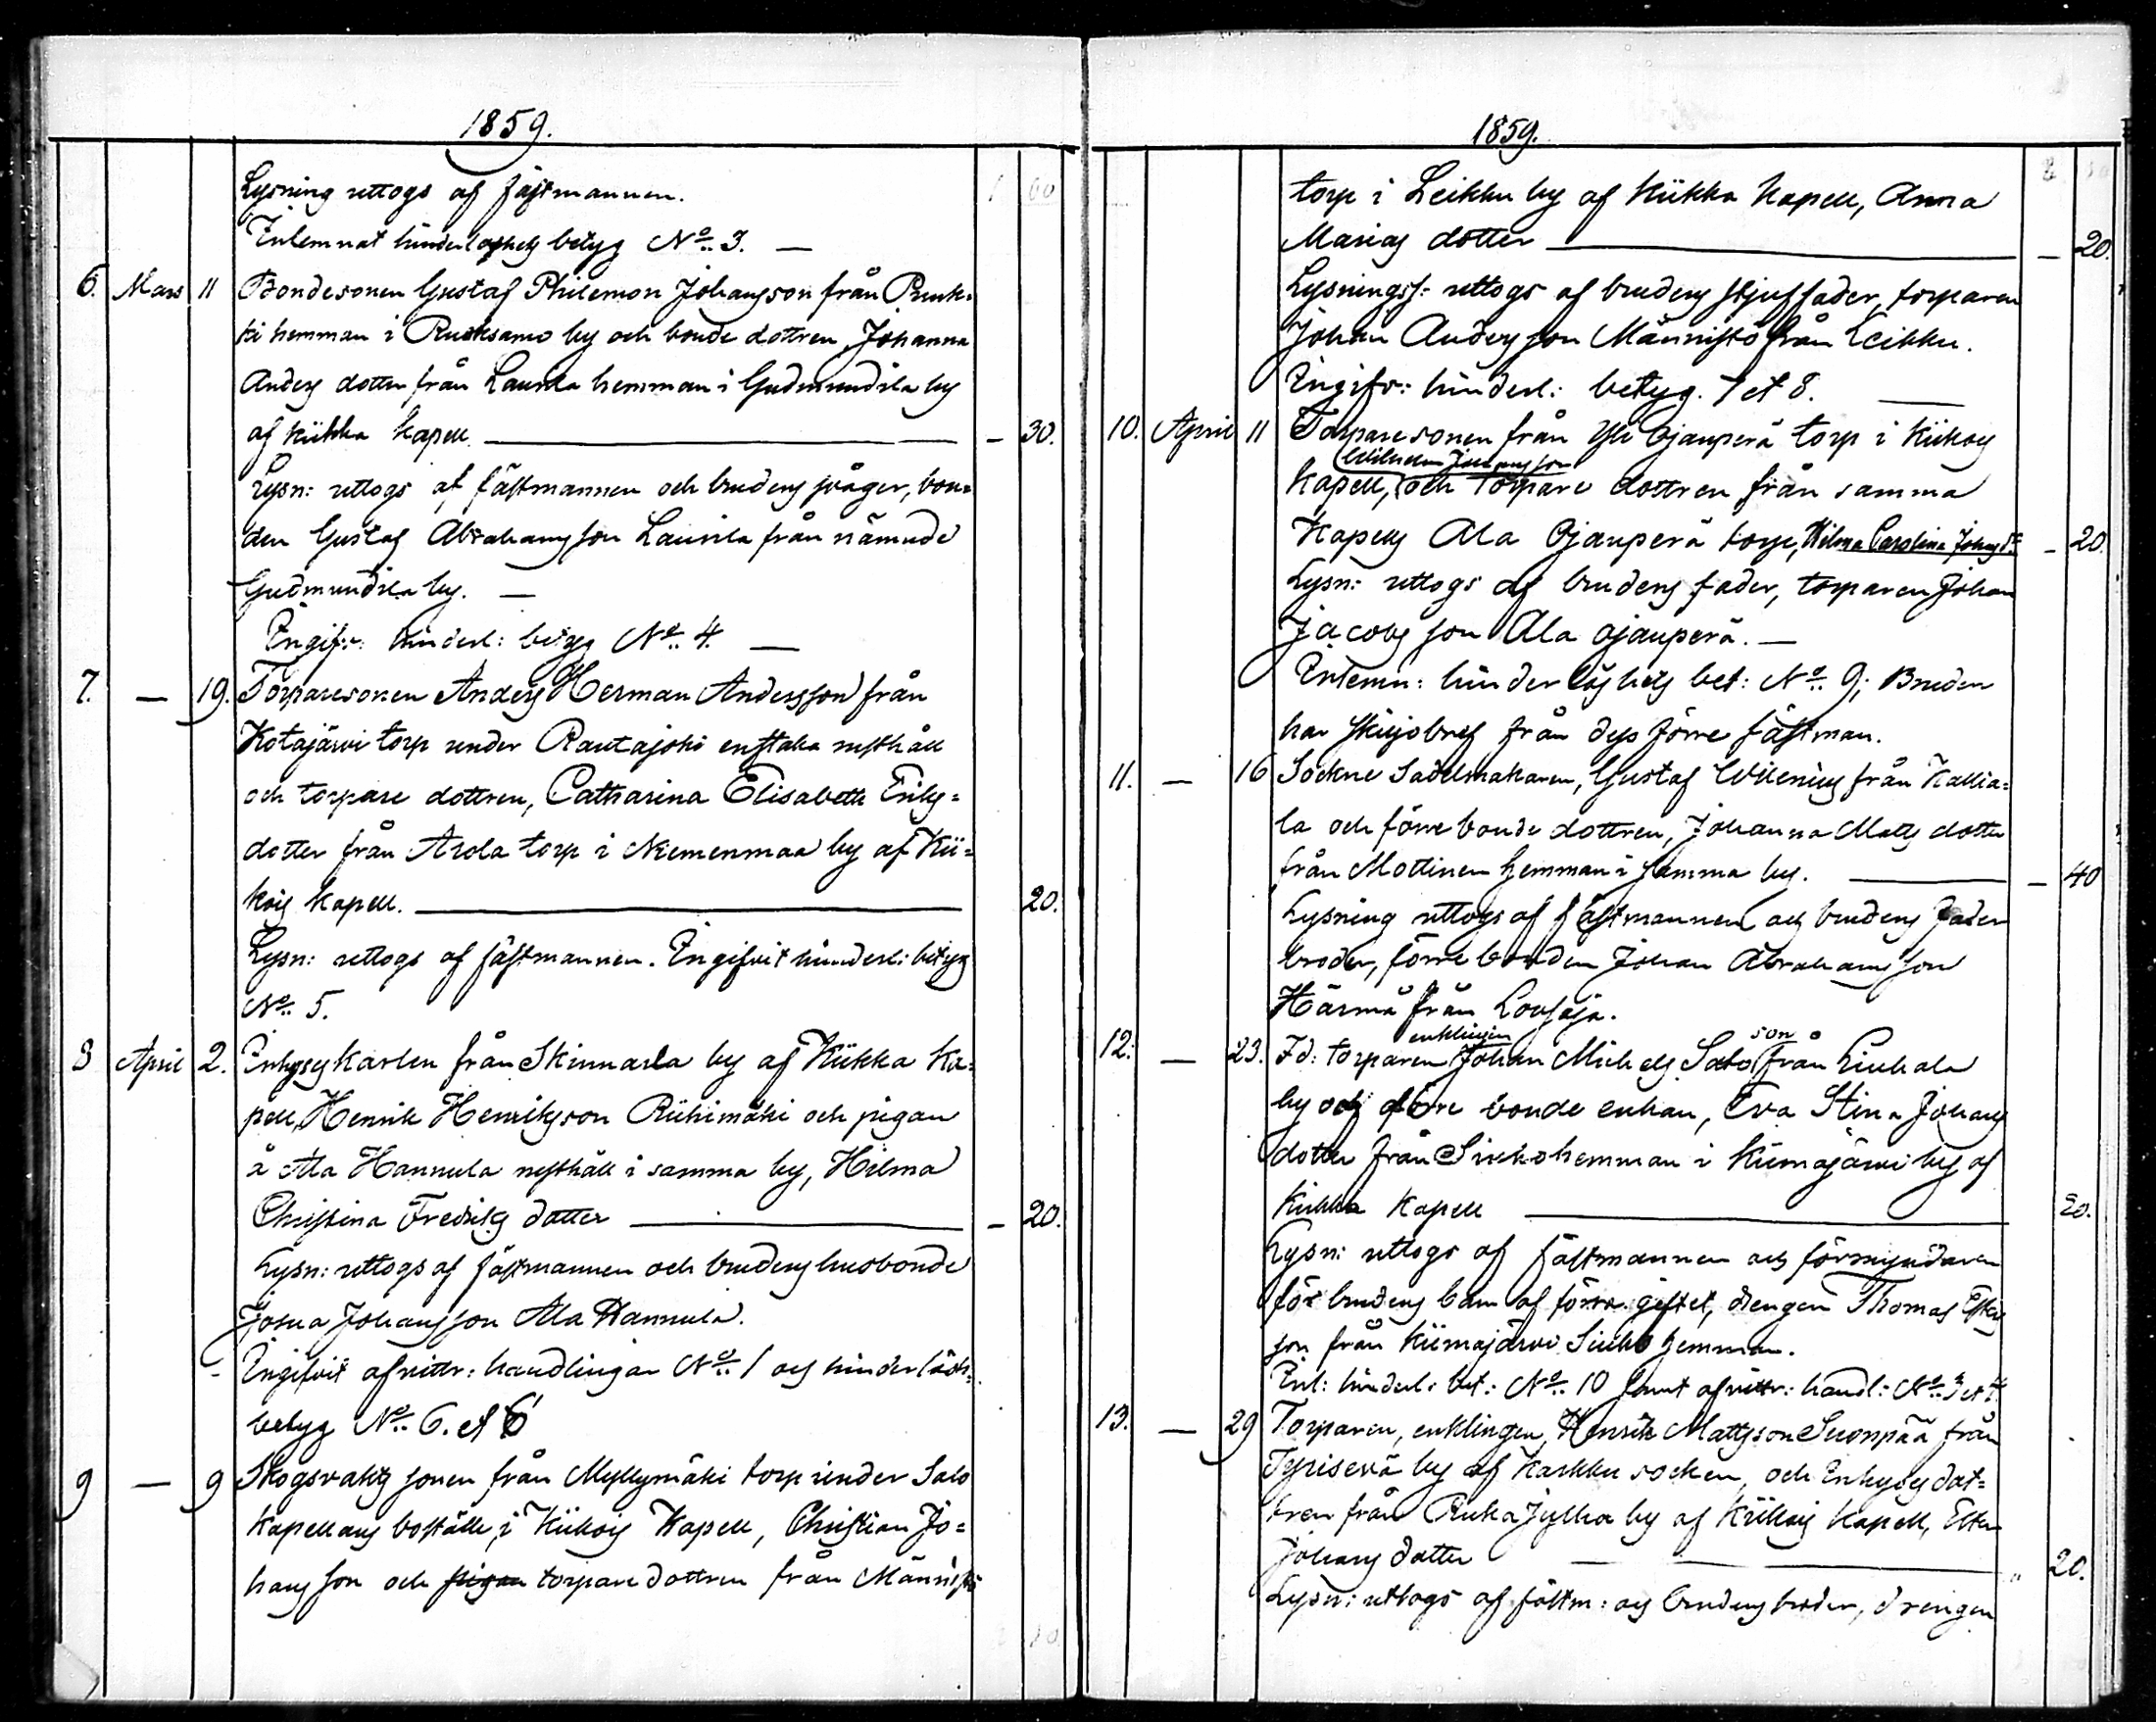 1859.
Lysning uttogs af fästmannen. 1 60
Inlemnat hinderlöshets betyg No. 3. —
6. Mars 11 Bondesonen Gustaf Philemon Johansson från Penk-
ki hemman i Ruoksamo by och bonde dottren, Johanna
Anders dotter från Laurila hemman i Gudmundila by
af Kiikka kapell. — — 30.
Lysn: uttogs af fästmannen och brudens svåger, bon-
den Gustaf Abrahamsson Laurila från nämnde
Gudmundila by. —
Ingifv: hinderl: betyg No. 4. —
7. — 19. Torparesonen Anders Herman Andersson från
Kotajärvi torp under Rautajoki enstaka rusthåll
och torpare dottren, Catharina Elisabeth Eriks-
dotter från Arola torp i Niemenmaa by af Kii-
kois kapell. — 20.
Lysn: uttogs af fästmannen. Ingifvit hinderl: betyg
No. 5.
8 April 2. Inhyseskarlen från Skinnarla by af Kiikka ka-
pell, Henrik Henriksson Riihimäki och pigan
å Ala Hannula rusthåll i samma by, Hilma
Christina Fredriks dotter — — 20.
Lysn: uttogs af fästmannen och brudens husbonde
Josua Johansson Ala Hannula.
Ingifvit afvittr: handlingar No. 1 och hinderlösh:
betyg No. 6. et 6
9 — 9 Skogsvakts sonen från Myllymäki torp under Salo
kapellans boställe, i Kiikois Kapell, Christian Jo-
hansson och pigan torpare dottren från Männistö
1859.
torp i Leikku by af Kiikka kapell, Anna
Marias dotter — — 20.
Lysningss: uttogs af brudens stjuffader, torparen
Johan Andersson Männistö från Leikku.
Ingifv: hinderl: betyg. 7 et 8. —
10. April 11 Torparesonen från Yli Ojanperä torp i Kiikois
Wilhelm Johansson
kapell, och torpare dottren från samma
Kapells Ala Ojanperä torp, Wilma Carolina Johans dr — 20.
Lysn: uttogs af brudens fader, torparen Johan
Jacobsson Ala Ojanperä. —
Inlemn: hinderlöshets bet: No. 9; Bruden
har skiljobref från dess förre fästman.
11. — 16 Sockne Sadelmakaren, Gustaf Wilenius från Kallia-
la och förre bonde dottren, Johanna Matts dotter
från Mottinen hemman i samma by. — — 40
Lysning uttogs af fästmannen och brudens fader
broder, förre bonden Johan Abrahamsson
Härmä från Lousaja.
enklingen son
12. — 23. Fd: torparen Johan Michels Salo från Liuhala
by och förre bonde enkan, Eva Stina Johans
dotter från Siukohemman i Kiimajärvi by af
Kiikka Kapell — 20.
Lysn: uttogs af fästmannen och förmyndaren
för brudens barn af förra giftet, drengen Thomas
son från Kiimajärvi Siuko hemman.
Inl: hinderl: bet: No. 10 samt afvittr: handl: No. 3 et 4
13. — 29 Torparen, enklingen, Henrik Mattsson Suonpää från
Tyrisevä by af Karkku socken, och Inhyses dot-
tren från Ruka Jylha by af Kiikois kapell, Ellen
Johans dotter — " 20.
Lysn: uttogs af fästm: och brudens broder, drengen